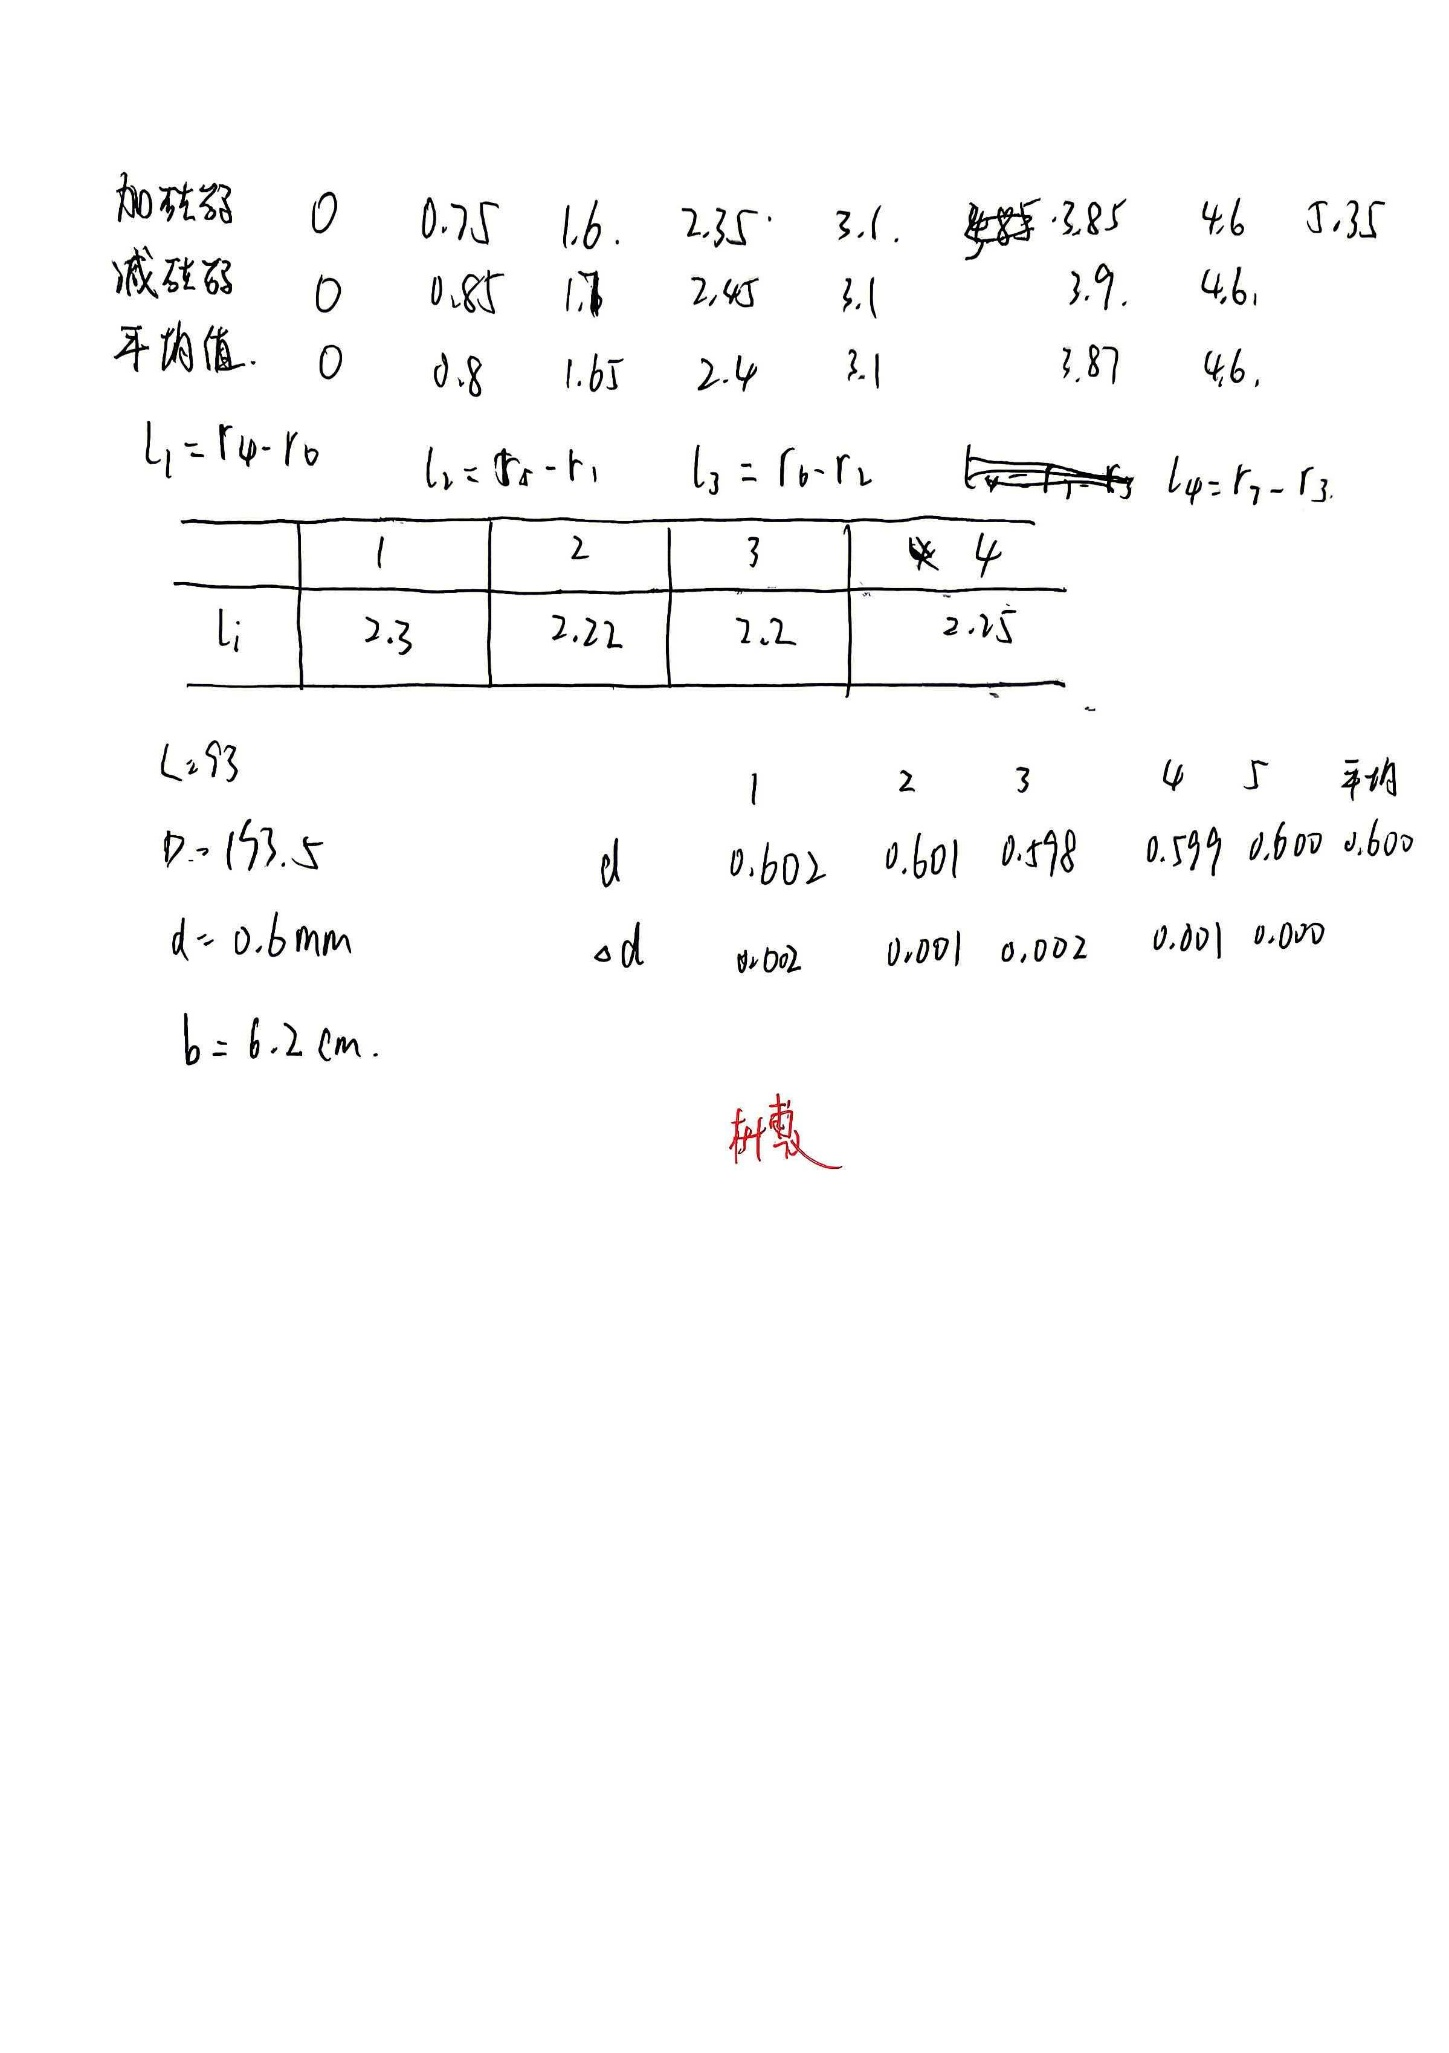 加砝码 0 0.75 1.6. 2.35 3.1. 3.85 4.6 5.35
减砝码 0 0.85 1.7 2.45 3.1 3.9. 4.6.
平均值. 0 0.8 1.65 2.4 3.1 3.87 4.6.
l₁=r₄-r₀ l₂=r₅-r₁ l₃=r₆-r₂ l₄=r₇-r₃.
1 2 3 4
li 2.3 2.22 2.2 2.25
L=93
1 2 3 4 5 平均
D=153.5
d 0.602 0.601 0.598 0.599 0.600 0.600
d=0.6mm
△d 0.002 0.001 0.002 0.001 0.000
b=6.2cm.